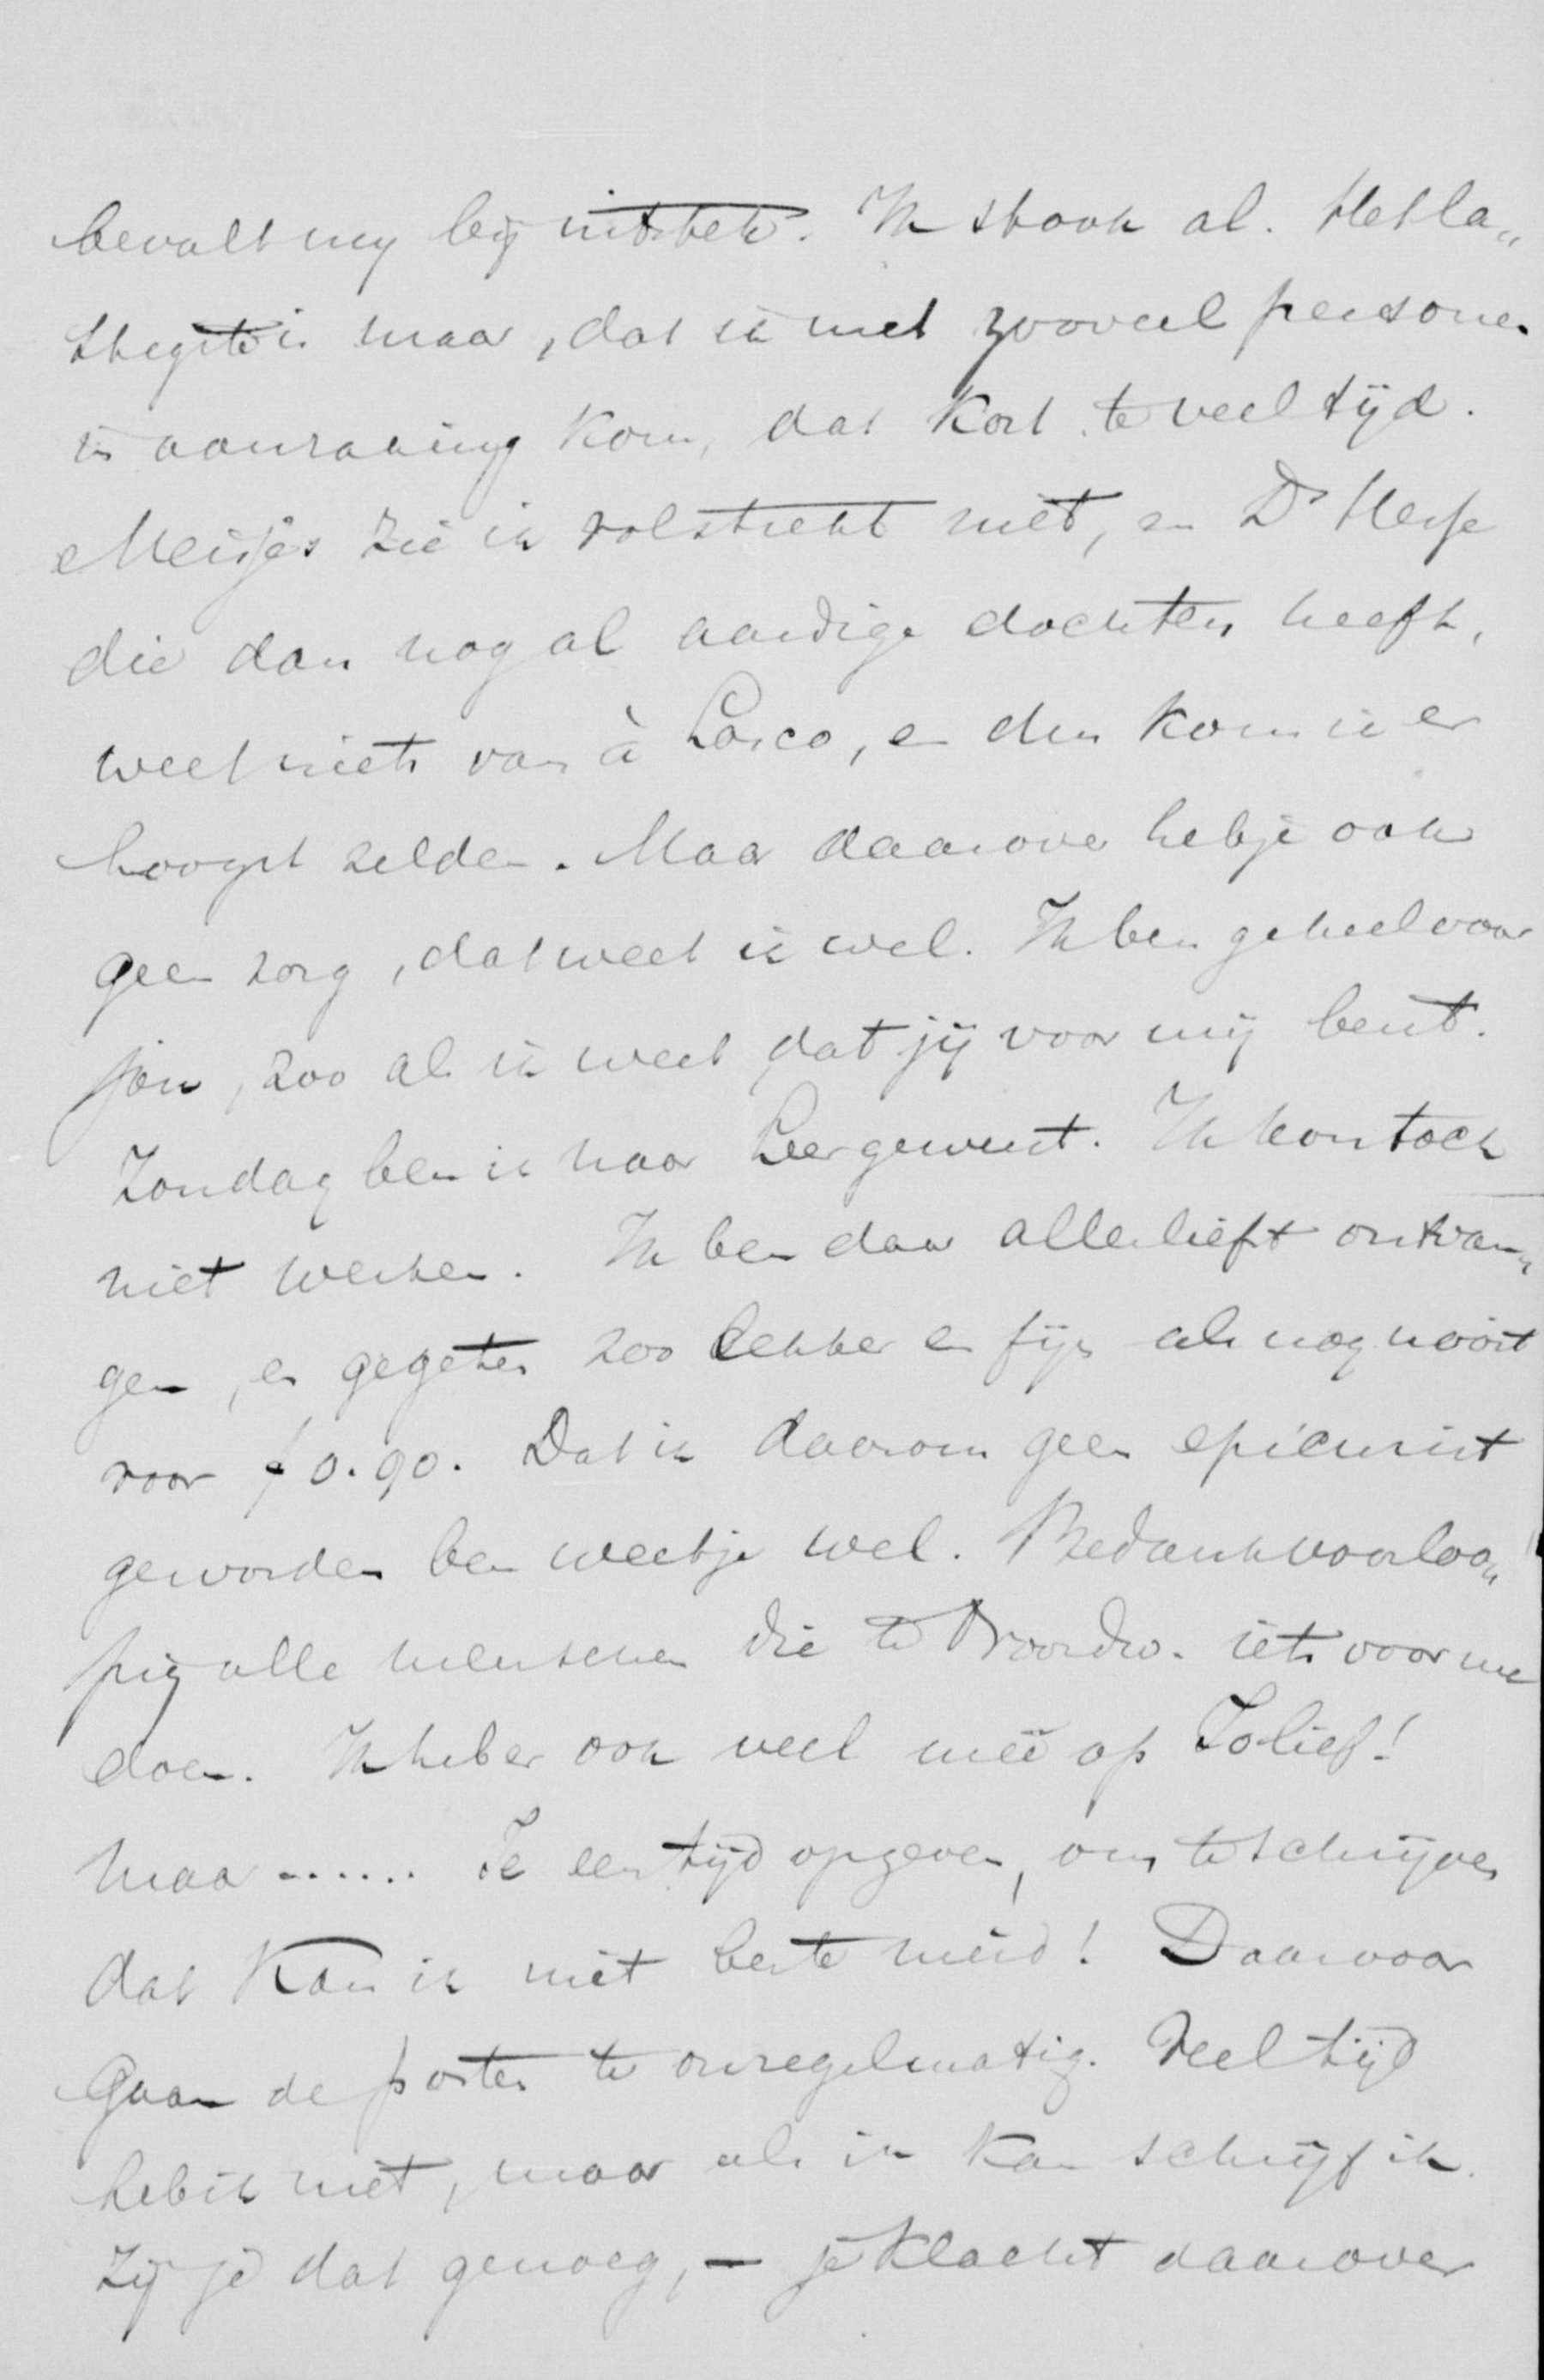 bevalt my by uitstek. Ik stook al. Het la„
stigste is maar, dat ik met zooveel personen
in aanraking kom, dat kost te veel tijd.
Meisjes zie ik volstrekt niet, en Dr Hesse
die dan nog al aardige dochters heeft,
weet niets van à Losco, en dus kom ik er
hoogst zelden. Maar daarover heb je ook
geen zorg, dat weet ik wel. Ik ben geheel voor
jou, zoo als ik weet dat jij voor mij bent.
Zondag ben ik naar Leer geweest. Ik kon toch
niet werken. Ik ben daar allerliefst ontvan„
gen, en gegeten zoo lekker en fijn als nog nooit
voor f 0.90. Dat ik daarom geen epicurist
geworden ben weet je wel. Bedank voorloo„
pig alle menschen die te Noordw. iets voor me
doen. Ik heb er ook veel meê op Jo lief!
Maar ...... Je een tijd opgeven, om te schrijven
dat kan ik niet beste meid! Daarvoor
gaan de posten te onregelmatig. Veel tijd
heb ik niet, maar als ik kan schrijf ik.
Zij je dat genoeg, — je klacht daarover